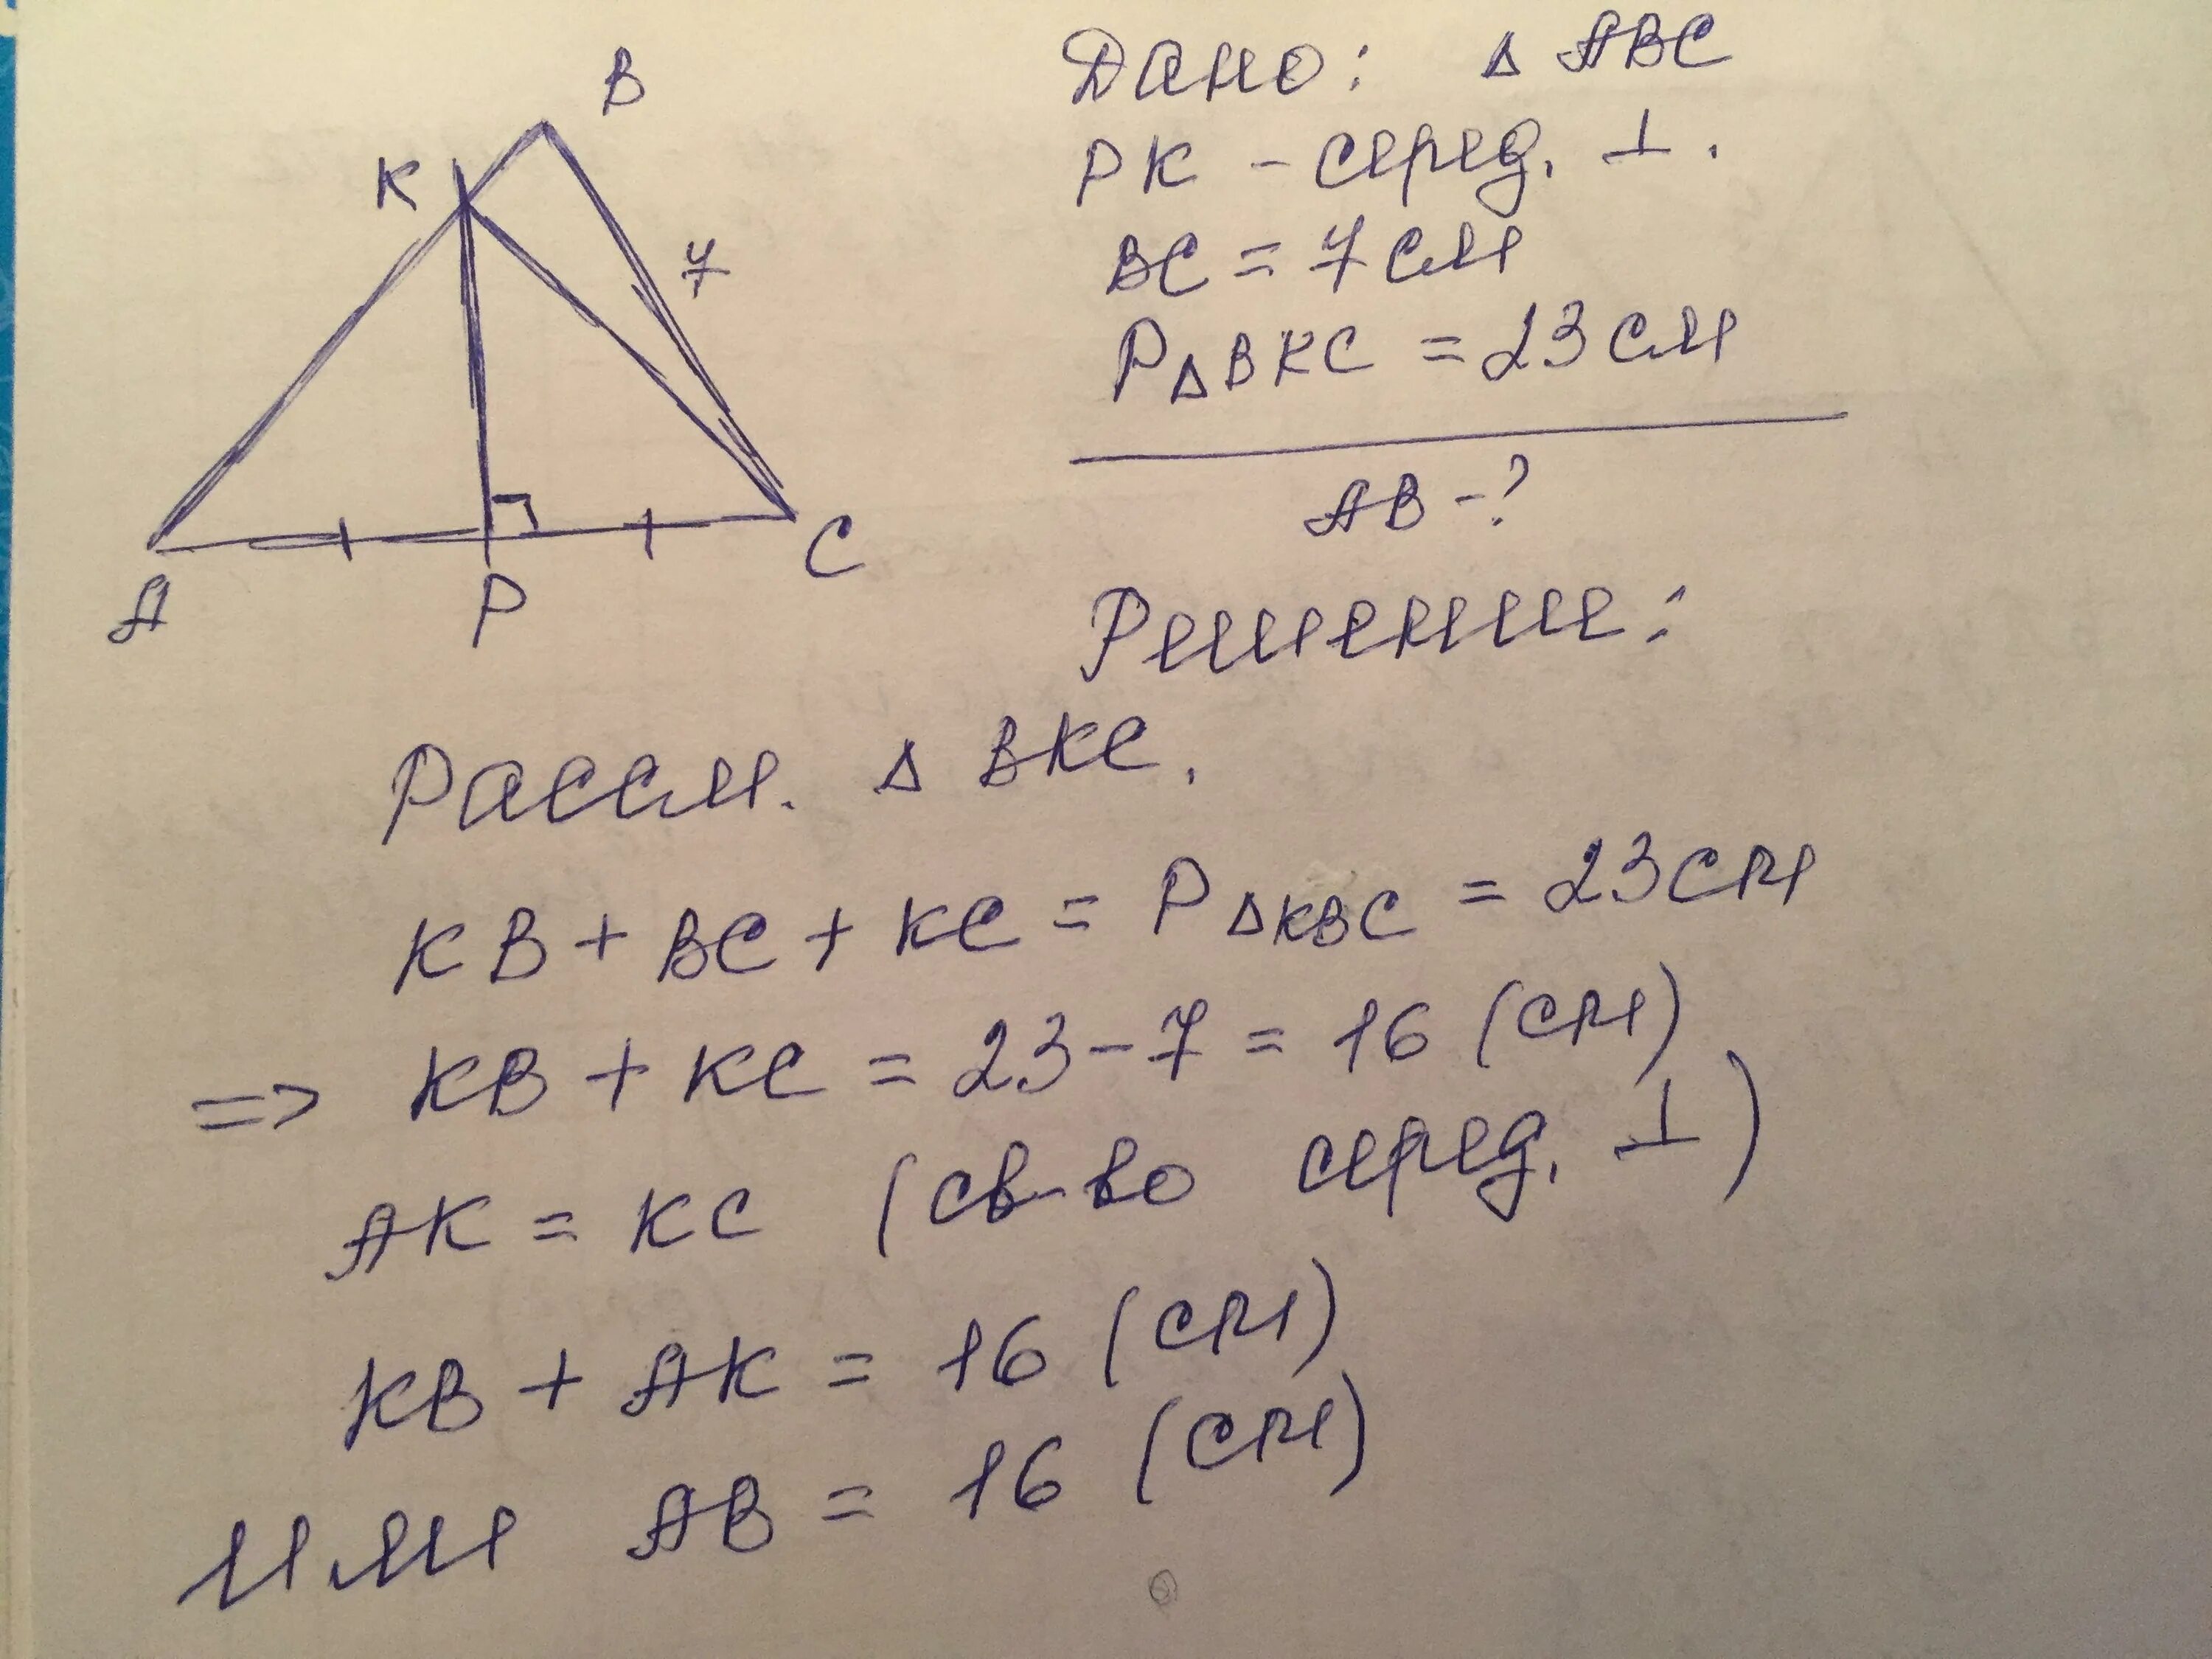 B
K
7
A
P
C
Дано: Δ ABC
PK - серед. ⊥.
BC = 7 см
PΔBKC = 23 см
AB - ?
Решение:
Рассм. Δ BKC.
KB + BC + KC = PΔKBC = 23 см
=> KB + KC = 23 - 7 = 16 (см)
AK = KC (св-во серед. ⊥)
KB + AK = 16 (см)
или AB = 16 (см)